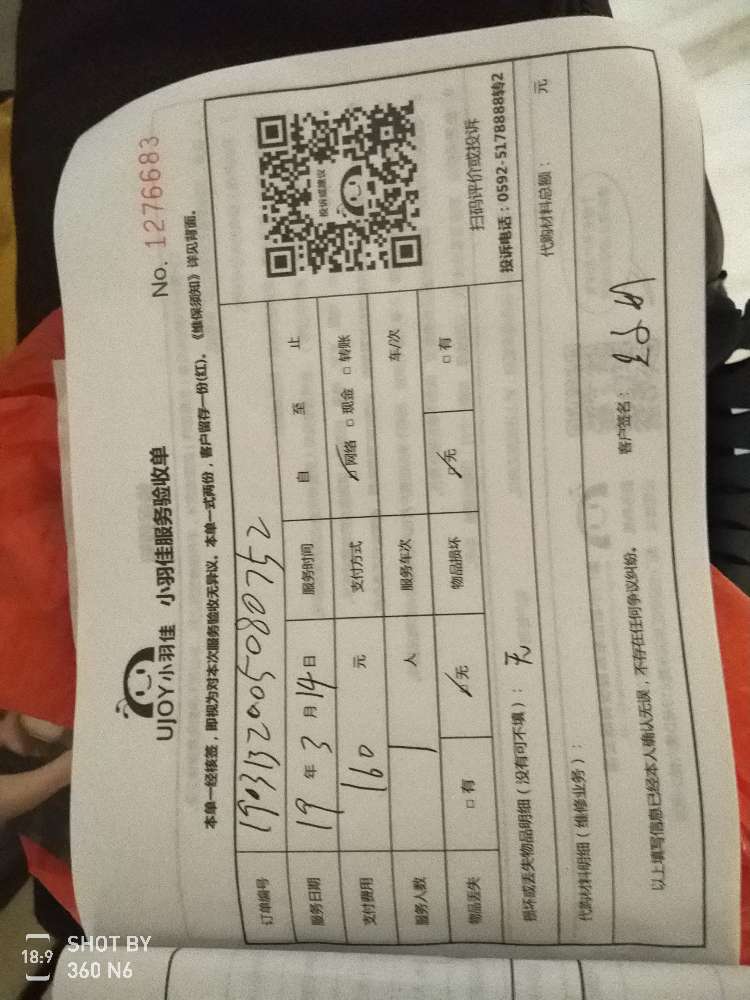 UJOY小羽佳 小羽佳服务验收单
No. 1276683
本单一经核签，即视为对本次服务验收无异议。本单一式两份，客户留存一份(红)。《维保须知》详见背面。
订单编号 1903132005080752
服务日期 19 年 3 月 14 日 服务时间 自 至 止
支付费用 160 元 支付方式 ☑网络 □现金 □转账
服务人数 1 人 服务车次 车/次
物品丢失 □有 ☑无 物品损坏 ☑无 □有
投诉或建议
扫码评价或投诉
投诉电话：0592-5178888转2
损坏或丢失物品明细（没有可不填）： 无
代购材料明细（维修业务）： 代购材料总额： 元
以上填写信息已经本人确认无误，不存在任何争议纠纷。 客户签名：
18:9 SHOT BY
360 N6